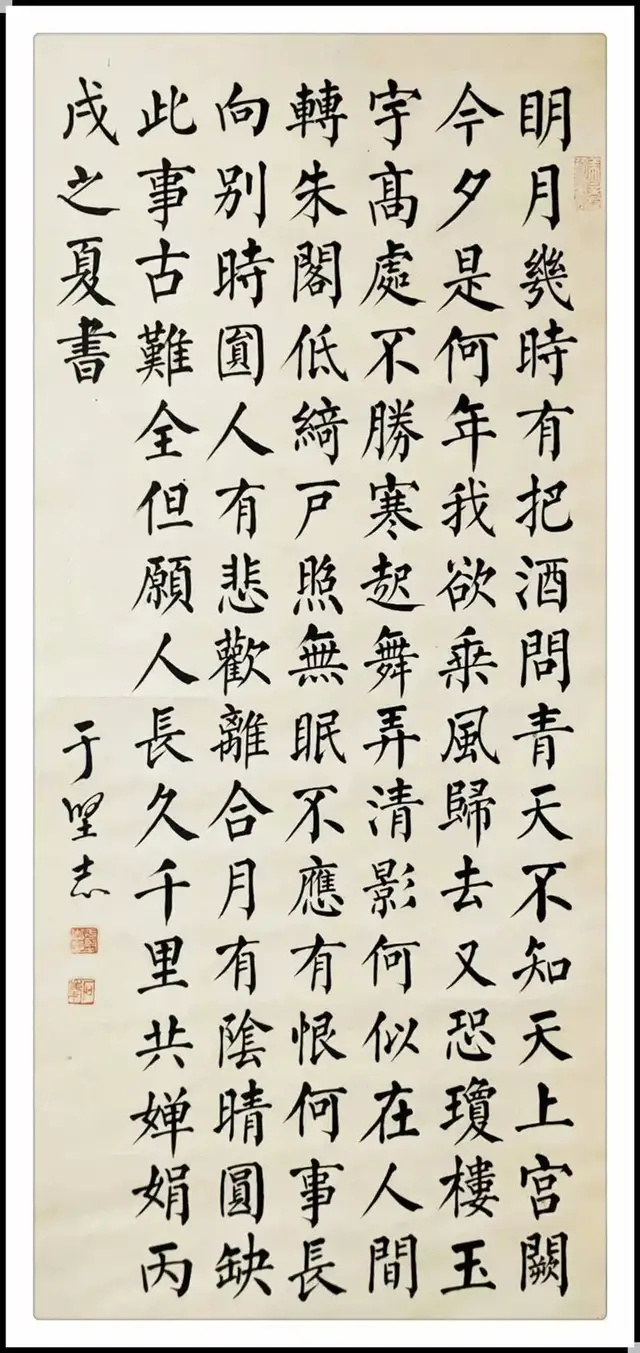 眀月幾時有把酒問青天不知天上宮闕
今夕是何年我欲乗風歸去又恐瓊樓玉
宇髙處不勝寒起舞弄清影何似在人間
轉朱閣低綺户照無眠不應有恨何事長
向别時圓人有悲歡離合月有陰晴圓缺
此事古難全但願人長久千里共嬋娟丙
戌之夏書
于坚志